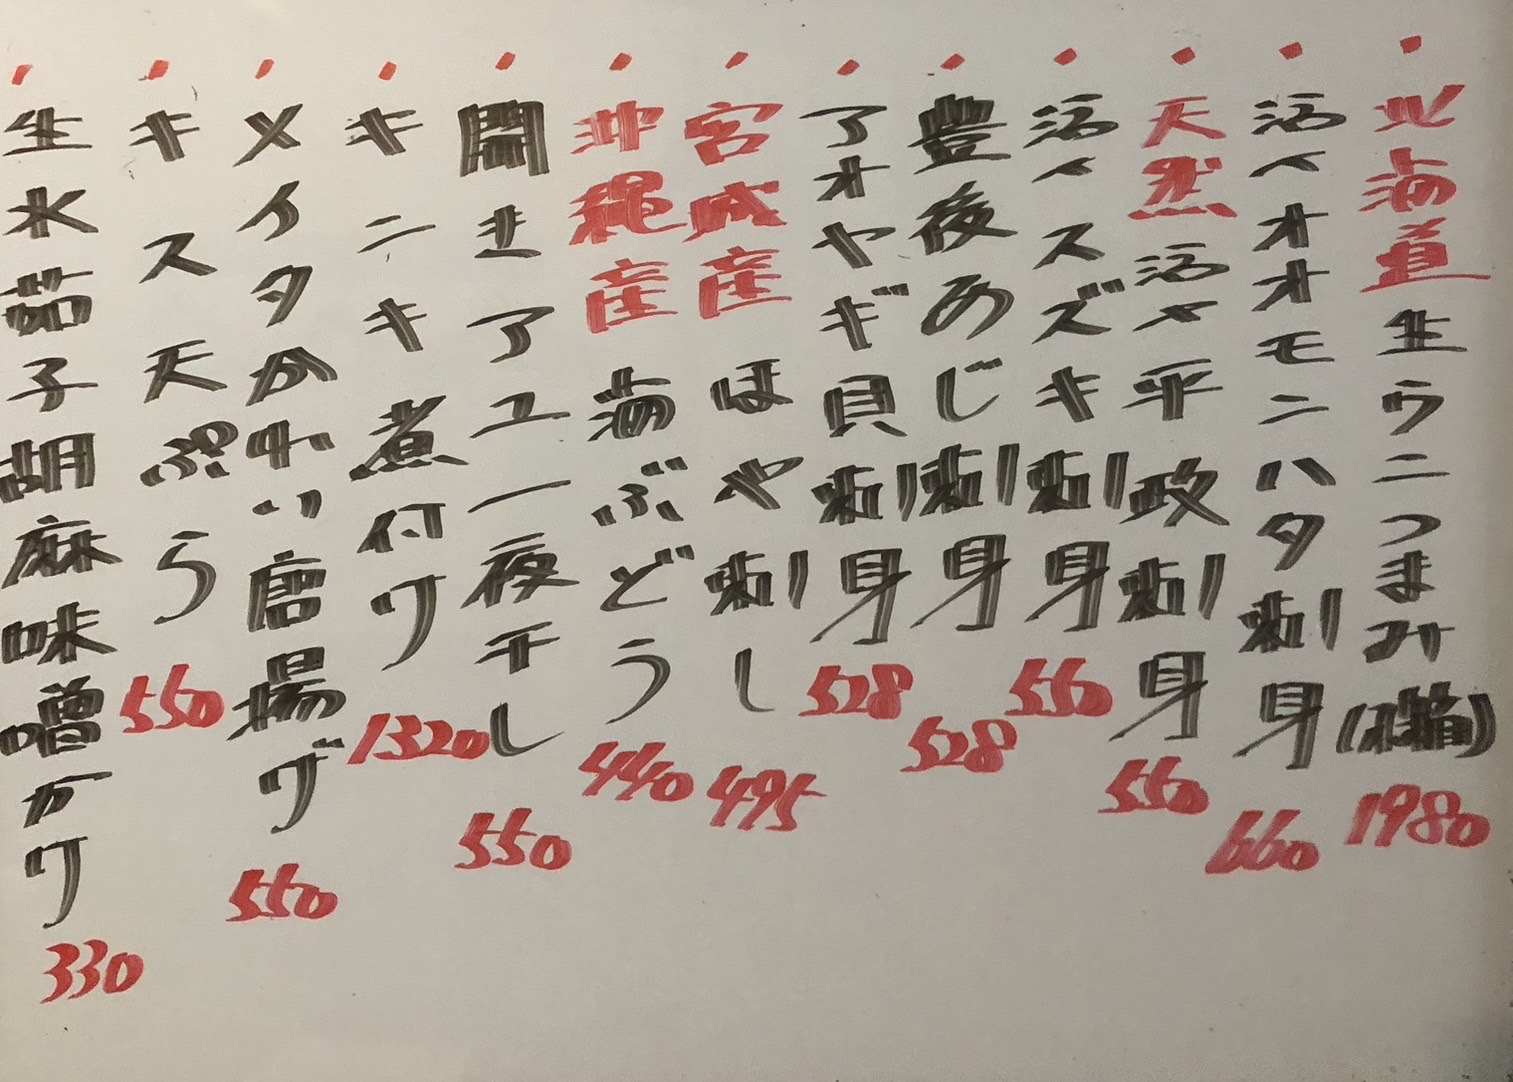 ・北海道生ウニつまみ(木箱)1980
・活〆オオモンハタ刺身660
・天然活〆平政刺身550
・活〆スズキ刺身550
・豊後あじ刺身528
・アオヤギ貝刺身528
・宮城産ほや刺し495
・沖縄産海ぶどう440
・開きアユ一夜干し550
・キンキ煮付け1320
・メイタかれい唐揚げ550
・キス天ぷら550
・生水茄子胡麻味噌かけ330